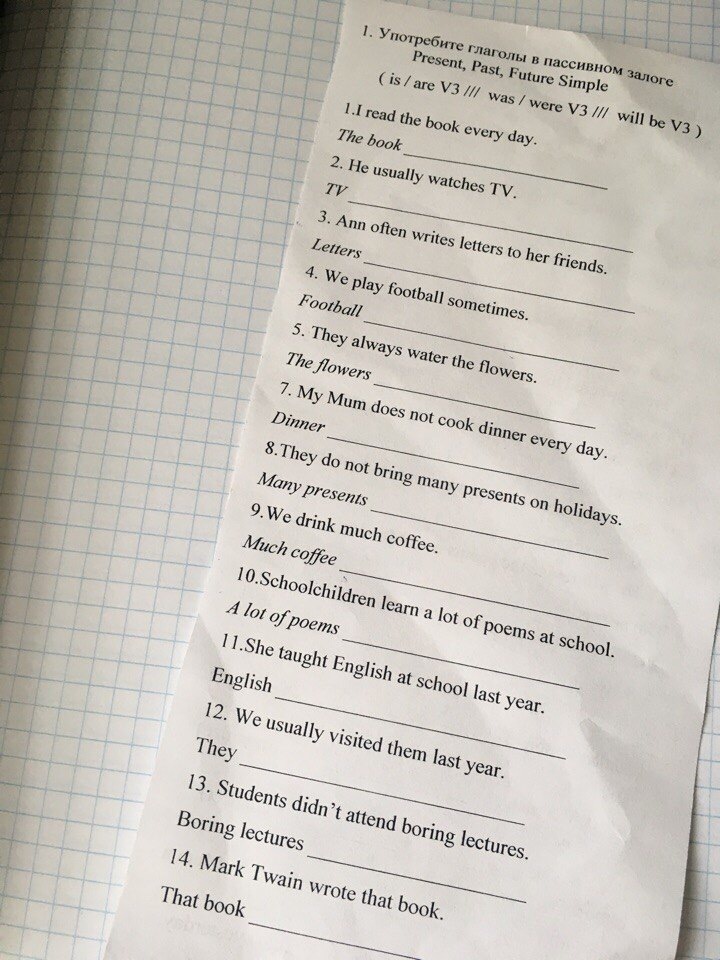 1. Употребите глаголы в пассивном залоге
Present, Past, Future Simple
( is / are V3 /// was / were V3 /// will be V3 )
1.I read the book every day.
The book
2. He usually watches TV.
TV
3. Ann often writes letters to her friends.
Letters
4. We play football sometimes.
Football
5. They always water the flowers.
The flowers
7. My Mum does not cook dinner every day.
Dinner
8.They do not bring many presents on holidays.
Many presents
9.We drink much coffee.
Much coffee
10.Schoolchildren learn a lot of poems at school.
A lot of poems
11.She taught English at school last year.
English
12. We usually visited them last year.
They
13. Students didn’t attend boring lectures.
Boring lectures
14. Mark Twain wrote that book.
That book